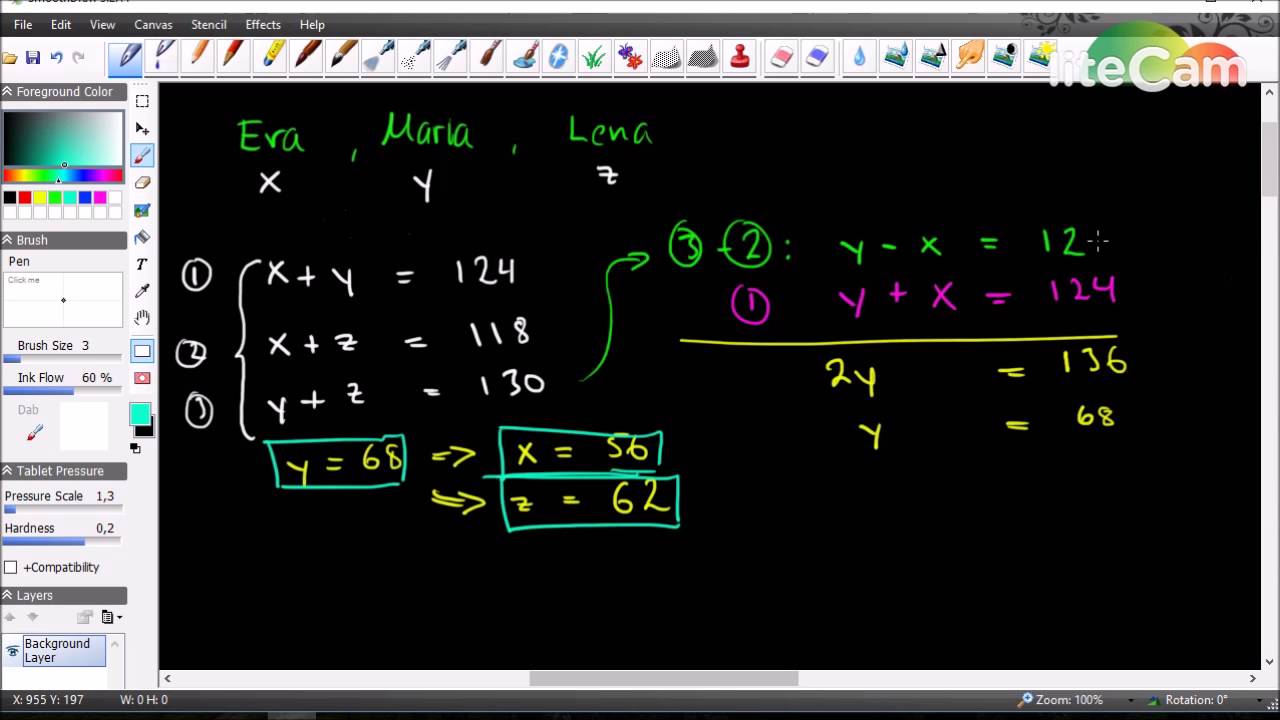 File Edit View Canvas Stencil Effects Help
liteCam
Foreground Color
Brush
Pen
Click me
Brush Size 3
Ink Flow 60 %
Dab
Tablet Pressure
Pressure Scale 1,3
Hardness 0,2
+Compatibility
Layers
Background Layer
X: 955 Y: 197 W: 0 H: 0
Zoom: 100% Rotation: 0°
Eva , Maria , Lena
x y z
① x + y = 124
② x + z = 118
③ y + z = 130
y = 68 => x = 56
=> z = 62
③ - ② : y - x = 12
① y + x = 124
2y = 136
y = 68